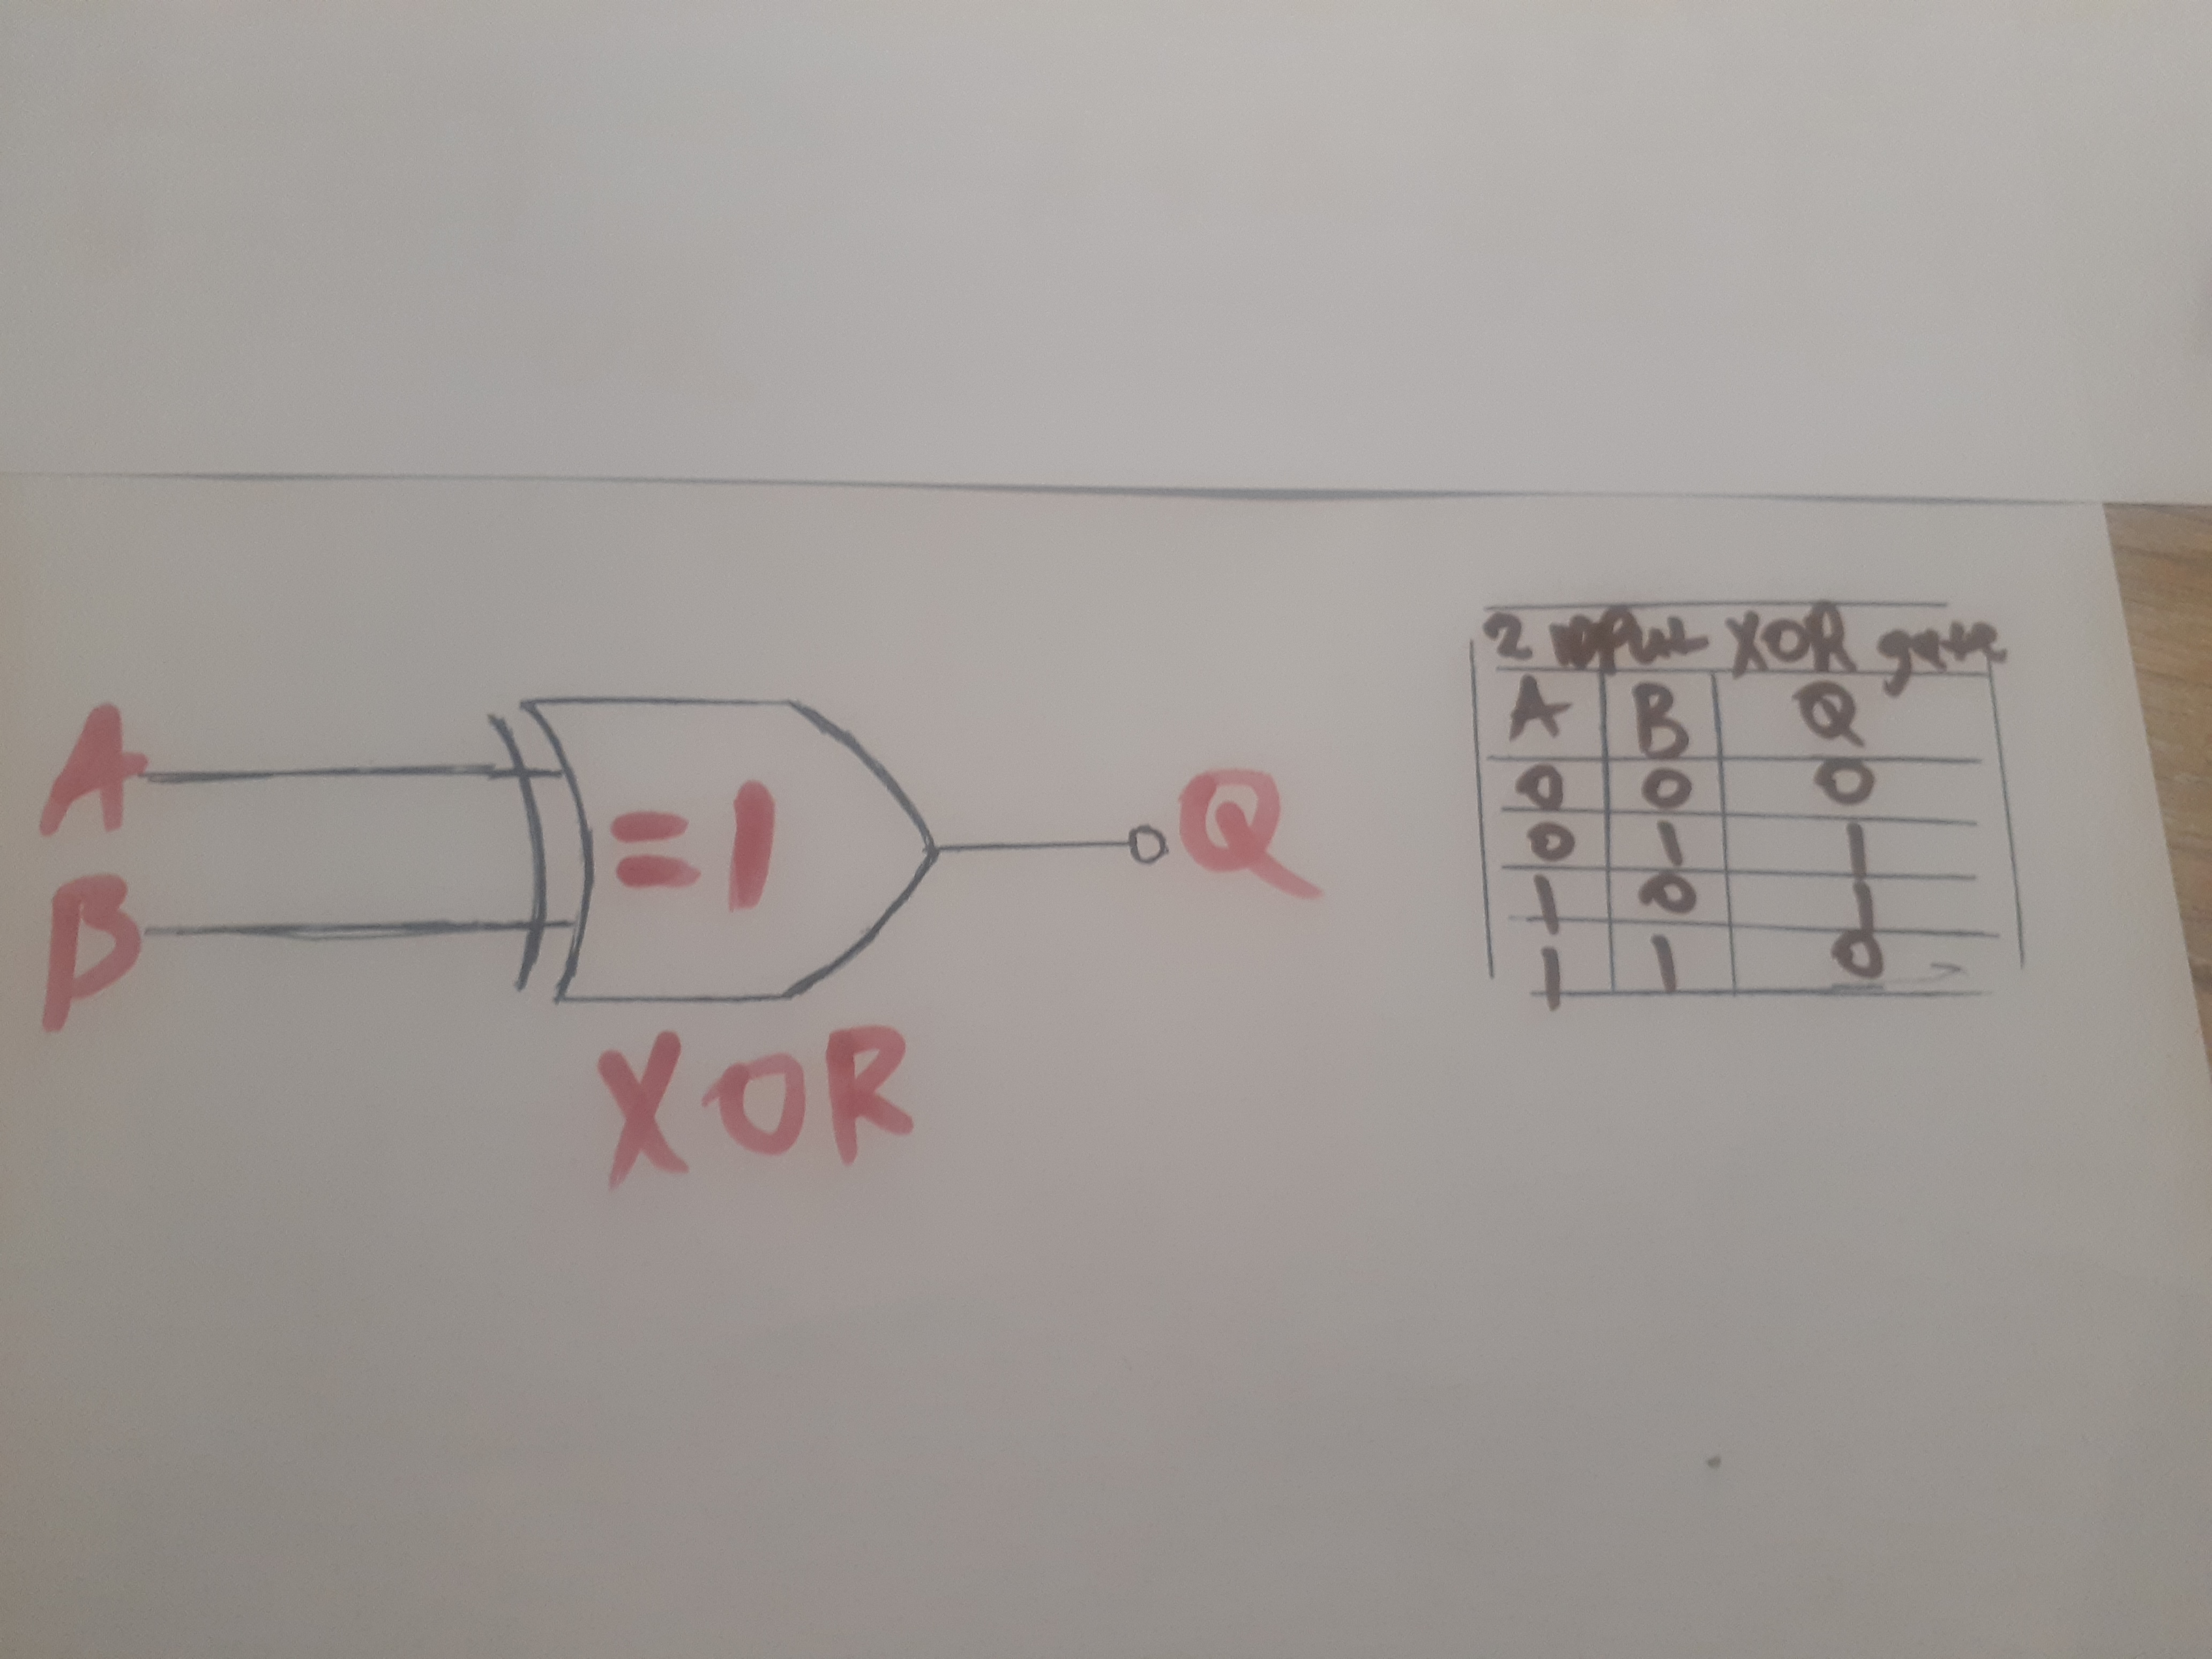 A
B
=1
Q
XOR
2 input XOR gate
A B Q
0 0 0
0 1 1
1 0 1
1 1 0